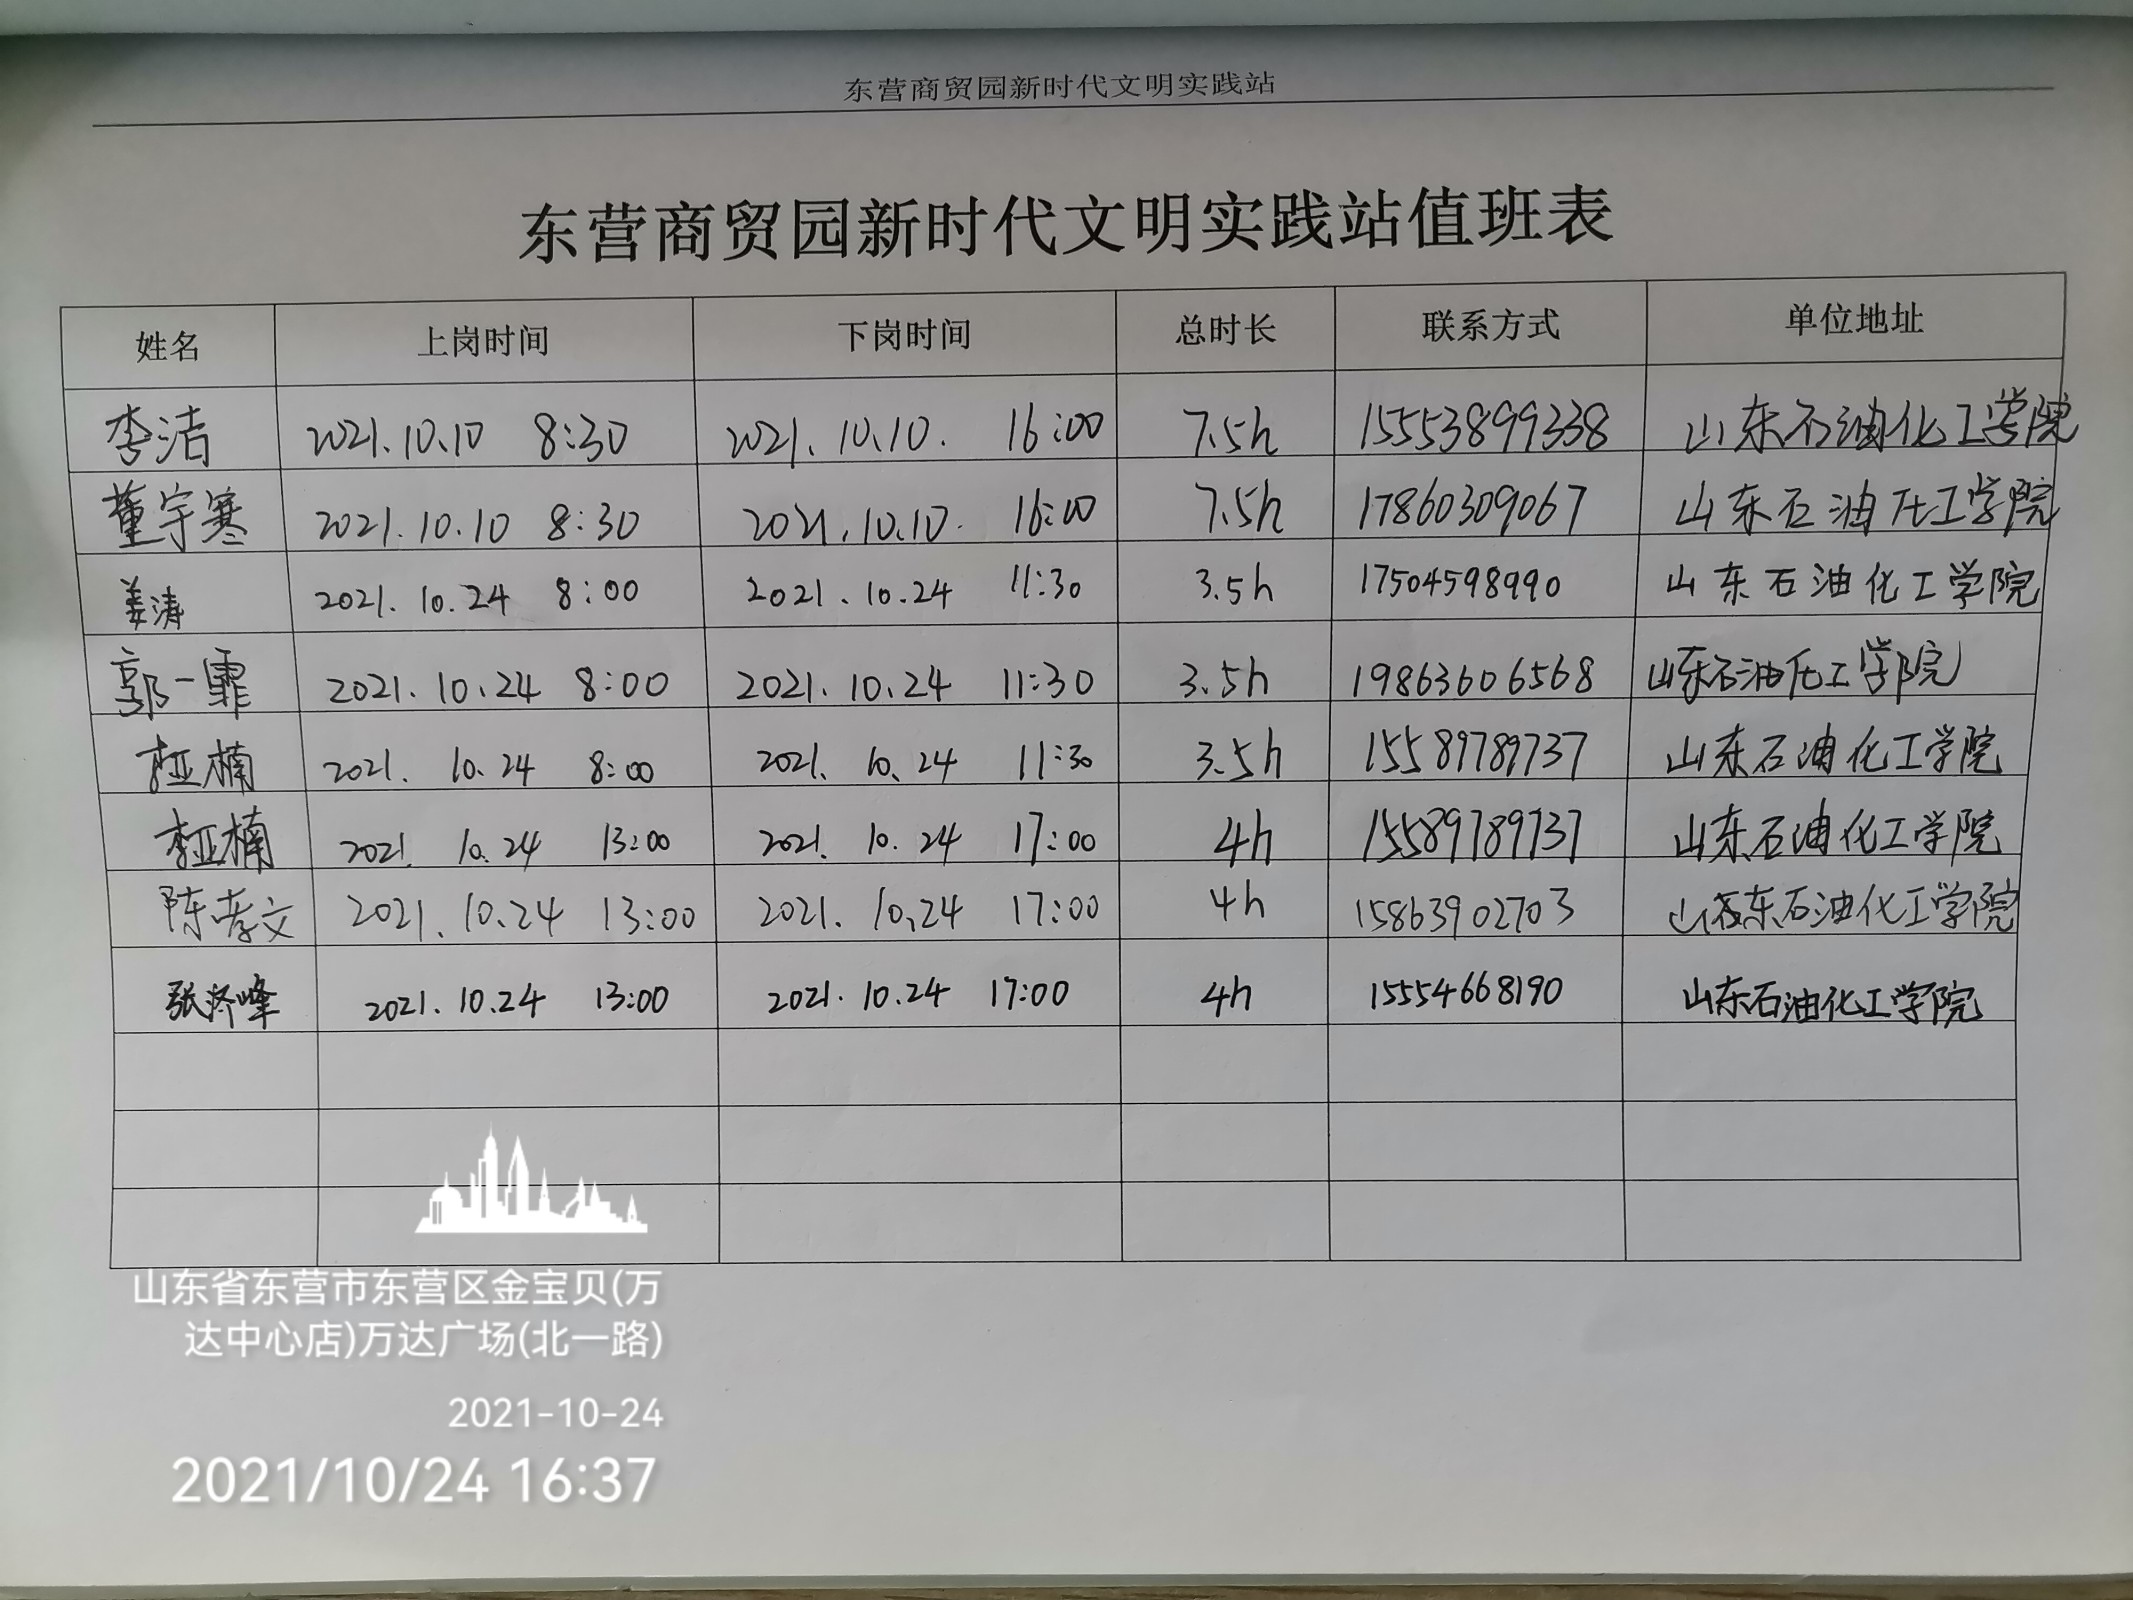 东营商贸园新时代文明实践站
东营商贸园新时代文明实践站值班表
姓名 上岗时间 下岗时间 总时长 联系方式 单位地址
李洁 2021.10.10 8:30 2021.10.10. 16:00 7.5h 15553899338 山东石油化工学院
董宇寒 2021.10.10 8:30 2021.10.10. 16:00 7.5h 17860309067 山东石油化工学院
姜涛 2021.10.24 8:00 2021.10.24 11:30 3.5h 17504598990 山东石油化工学院
郭一霏 2021.10.24 8:00 2021.10.24 11:30 3.5h 19863606568 山东石油化工学院
李亚楠 2021.10.24 8:00 2021.10.24 11:30 3.5h 15589789737 山东石油化工学院
李亚楠 2021.10.24 13:00 2021.10.24 17:00 4h 15589789737 山东石油化工学院
陈孝文 2021.10.24 13:00 2021.10.24 17:00 4h 15863902703 山东石油化工学院
张 峰 2021.10.24 13:00 2021.10.24 17:00 4h 15554668190 山东石油化工学院
山东省东营市东营区金宝贝(万
达中心店)万达广场(北一路)
2021-10-24
2021/10/24 16:37